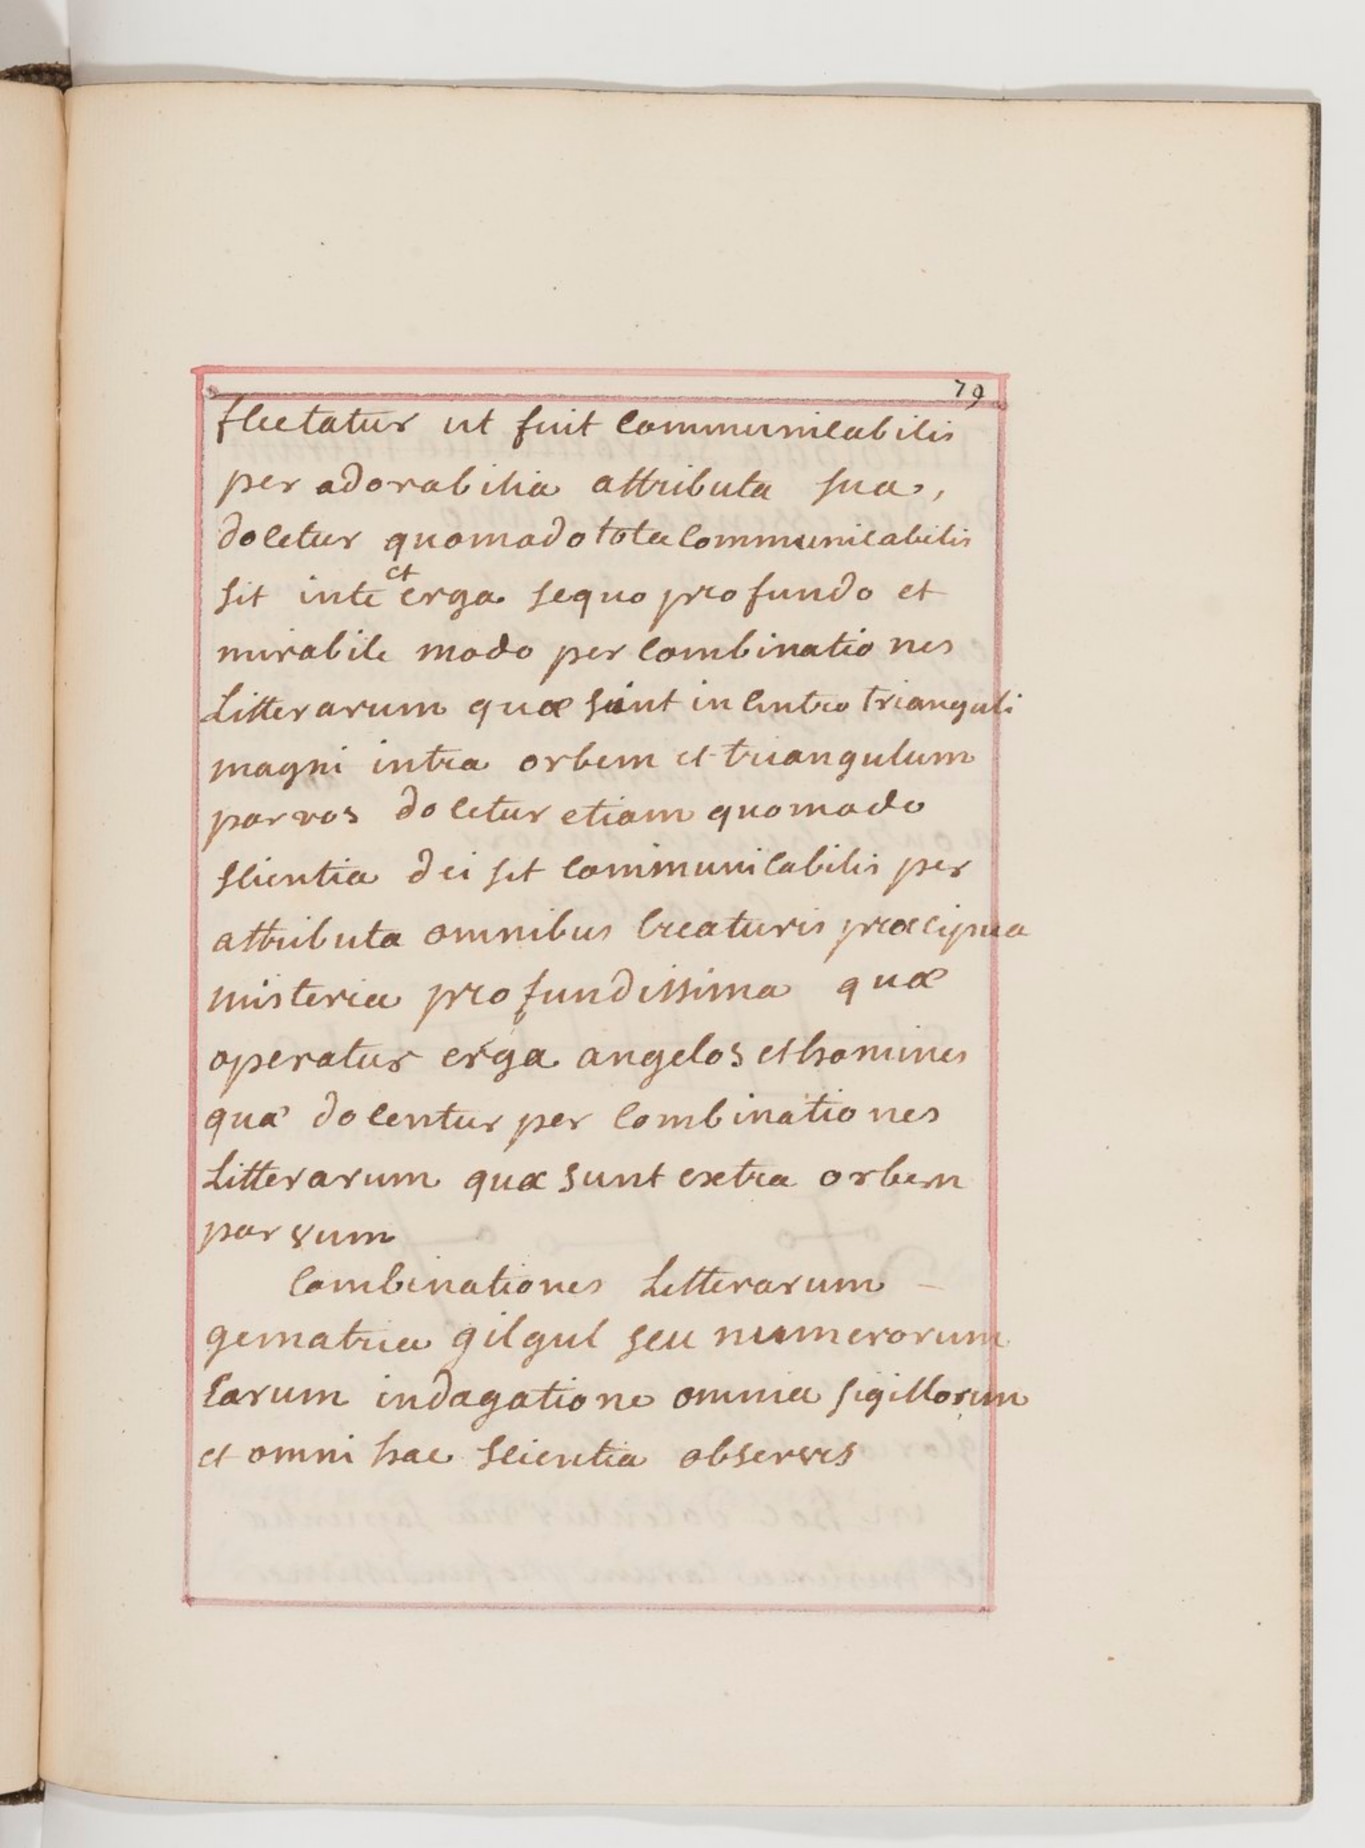 79
flectatur ut fuit communicabilis
per adorabilia attributa sua,
docetur quomodo tota communicabilis
sit inte et erga sequo profundo et
mirabile modo per combinationes
Litterarum quæ sunt in centro trianguli
magni intra orbem et triangulum
parvos docetur etiam quomodo
scientia dei sit communicabilis per
attributa omnibus creaturis præcipua
misteria profundissima quæ
operatur erga angelos et homines
quæ docentur per combinationes
Litterarum quæ sunt extra orbem
parvum
Combinationes Litterarum
gematria gilgul seu numerorum
earum indagatione omnia sigillorum
et omni hac scientia observes